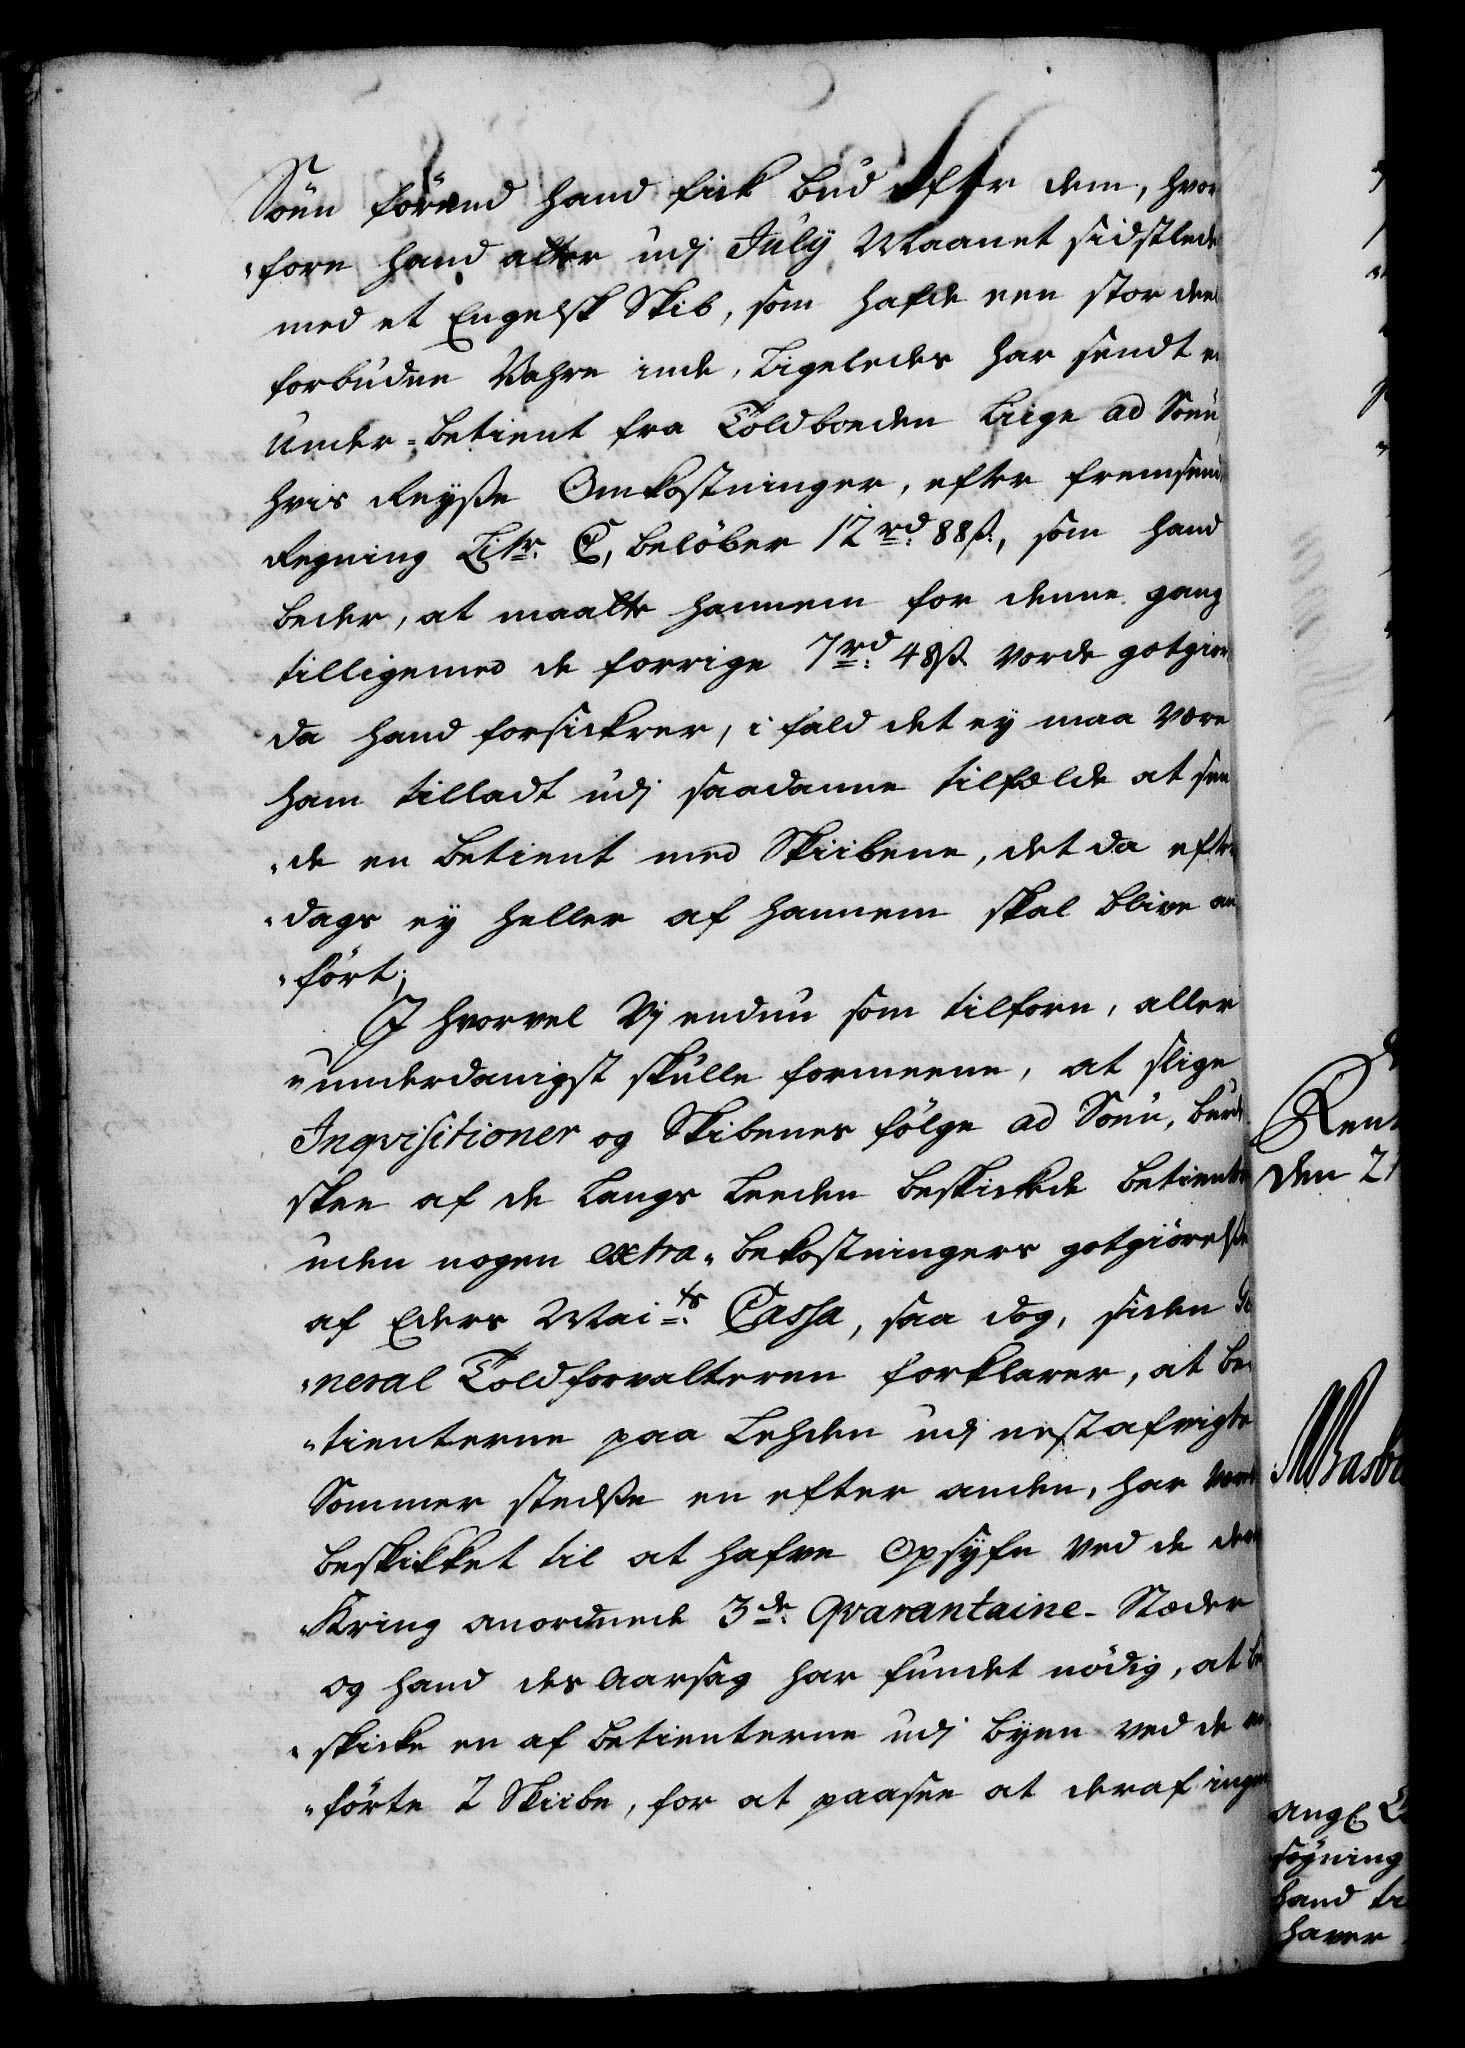 Söen förend hand fick bud efter dem, hvor
"fore hand atter udj July Maanet sidstleden
med et Engelsk Skib, som hafde een stor deel
forbudne Vahre inde, ligeledes har sendt en
under-betient fra Toldboeden liige ad Söen,
hvis Reyße Omkostninger, efter fremsendte
Regning Litr. C, beløber 12 rd. 88 ß., som hand
beder, at maatte hannem for denne gang
tilligemed de forrige 7 rd. 48 ß. vorde gotgiort
da hand forsickrer, i fald det ey maa være
ham tilladt udj saadanne tilfælde at sen
"de en betient med Skiibene, det da efter
"dags ey heller af hannem skal blive an
"ført;
I hvorvel Vj endnu som tilforn, aller
"underdanigst skulle formeene, at slige
Inqvisitioner og Skibenes følge ad Söen, burde
skee af de langs Leeden beskickede betiente
uden nogen extra-bekostningers gotgiørelße
af Eders Maits. Cassa, saa dog, siden Ge
"neral Toldforvalteren forklarer, at be
"tienterne paa Lehden udj nestafvigte
Sommer stedße en efter anden, har været
beskikket til at hafve Opsyn ved de der
"Kring anordnede 3de. Qvarantaine-Stæder
og hand des Aarsag har fundet nödig, at be
"skicke en af betienterne udj byen ved de an
"førte 2 Skiibe, for at paasee at deraf ingen
Rent
den 21
ang.
søyning
hand
haver